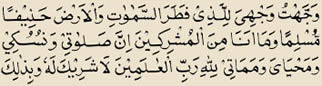 وَجَّهْتُ وَجْهِيَ لِلَّذِىْ فَطَرَ السَّمٰوٰتِ وَالْاَرْضَ حَنِيْفًا
مُّسْلِمًا وَّمَا اَنَا مِنَ الْمُشْرِكِيْنَ اِنَّ صَلٰوتِىْ وَنُسُكِىْ
وَمَحْيَاىَ وَمَمَاتِىْ لِلّٰهِ رَبِّ الْعٰلَمِيْنَ لَا شَرِيْكَ لَهٗ وَبِذٰلِكَ